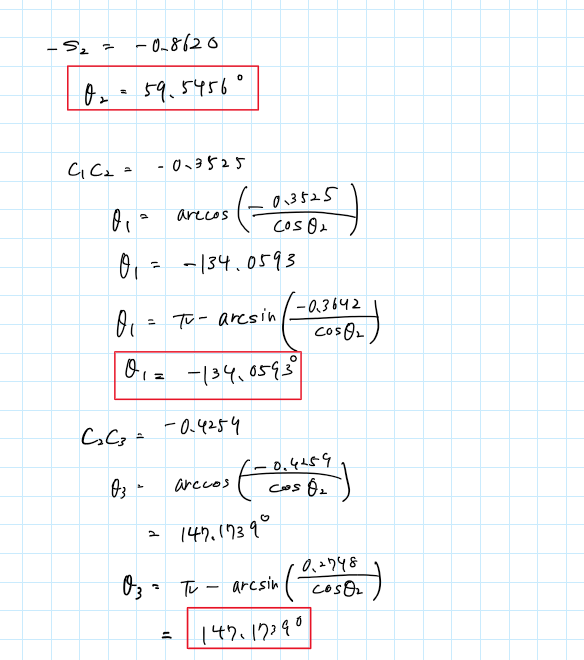 -S₂ = -0.8620
θ₂ = 59.5456°
C₁C₂ = -0.3525
θ₁ = arccos(-0.3525/cosθ₂)
θ₁ = -134.0593
θ₁ = π - arcsin(-0.3642/cosθ₂)
θ₁ = -134.0593°
C₂C₃ = -0.4259
θ₃ = arccos(-0.4259/cosθ₂)
= 147.1739°
θ₃ = π - arcsin(0.2748/cosθ₂)
= 147.1739°